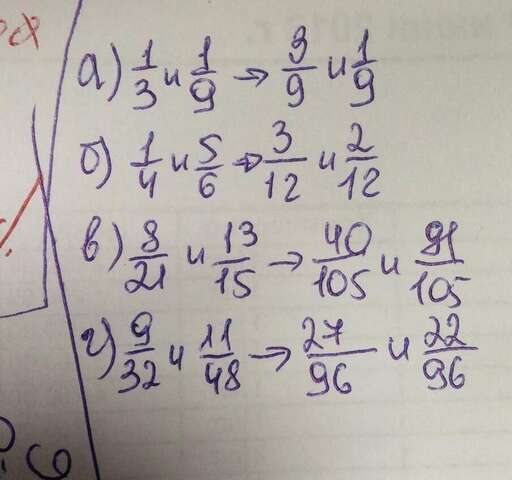 а) 1/3 и 1/9 → 3/9 и 1/9
б) 1/4 и 5/6 → 3/12 и 2/12
в) 8/21 и 13/15 → 40/105 и 91/105
г) 9/32 и 11/48 → 27/96 и 22/96